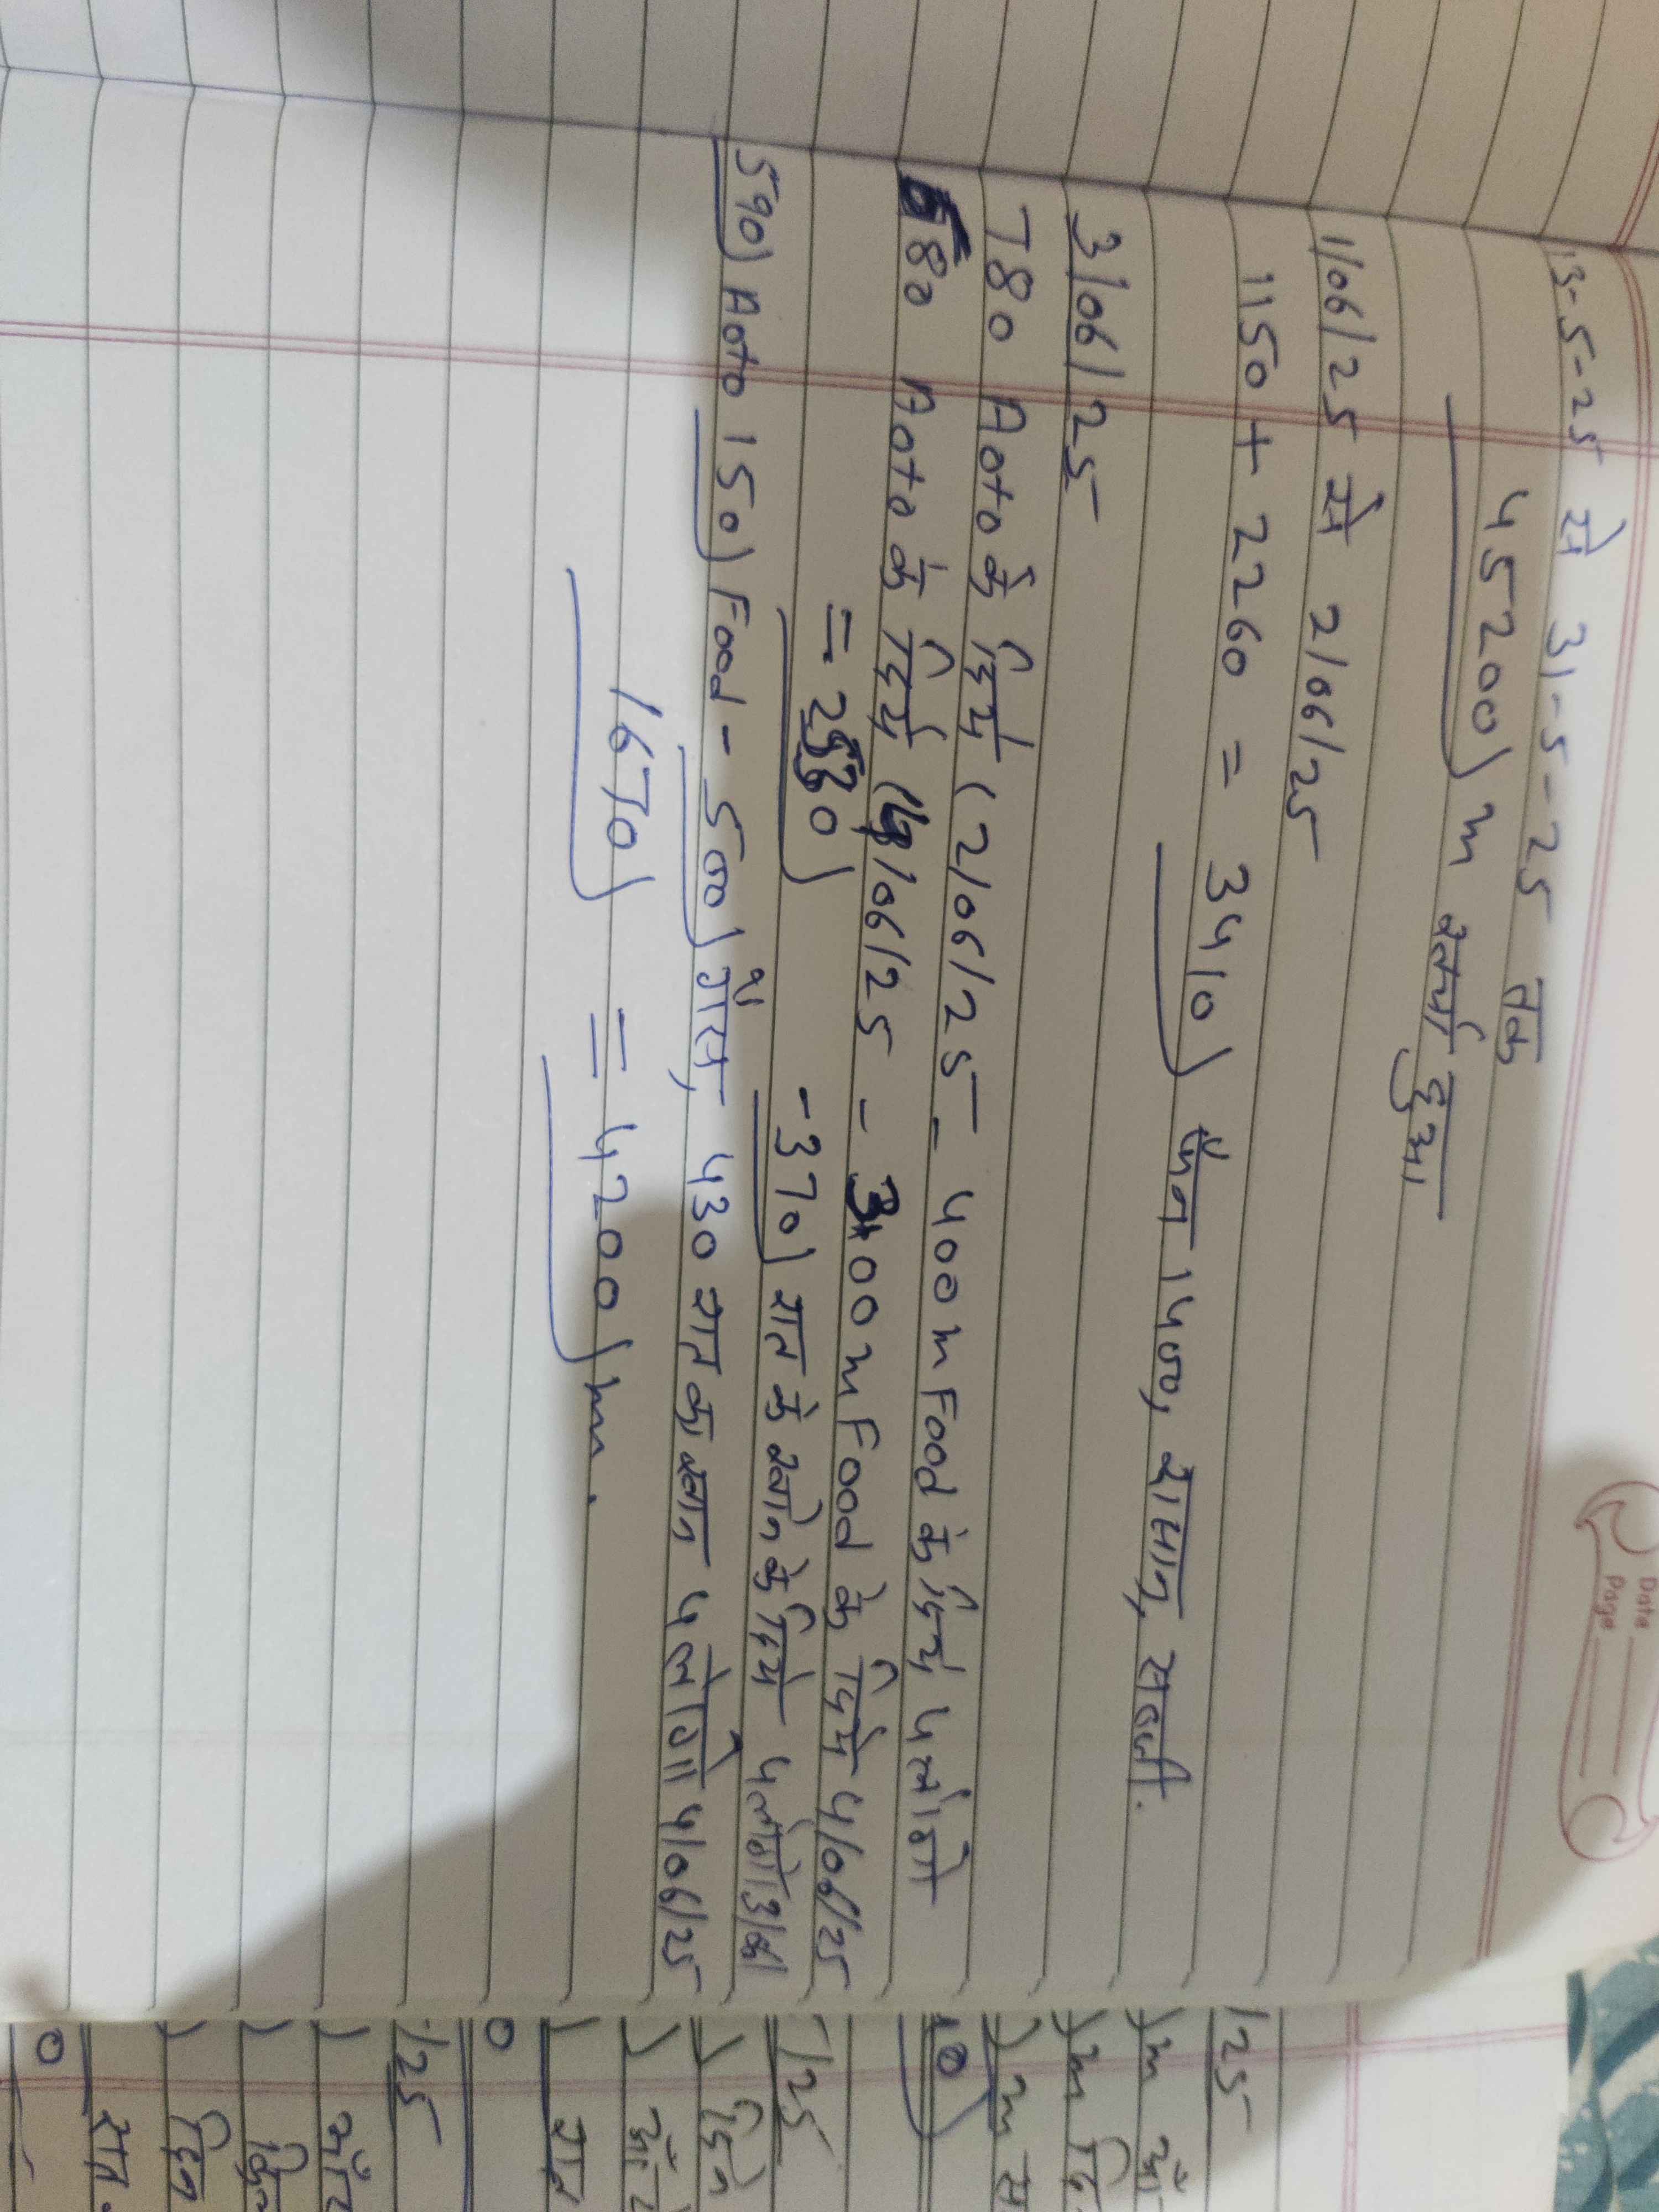 Date
Page
13-5-25 से 31-5-25 तक
45200) m खर्चा हुआ
1/06/25 से 2/06/25
1150 + 2260 = 3410) फैन 1400, सामान, सब्जी.
3/06/25
780 Aoto के दिये (2/06/25 - 400 m Food के दिये, 4 लोगो
580 Aoto के दिये ( /06/25 - 300 m Food के दिये 4/06/25
= 2530) - 370) रात के खाने के दिये 4 लोगो 3/06/
590) Aoto 150) Food - 500) गैस, 430 रात का खाना 4 लोगो 4/06/25
1670) = 4200) m.
/25
) m
) m
) m
/25
) दिन
)
) रात
/25
)
) दिन
) दिन
रात